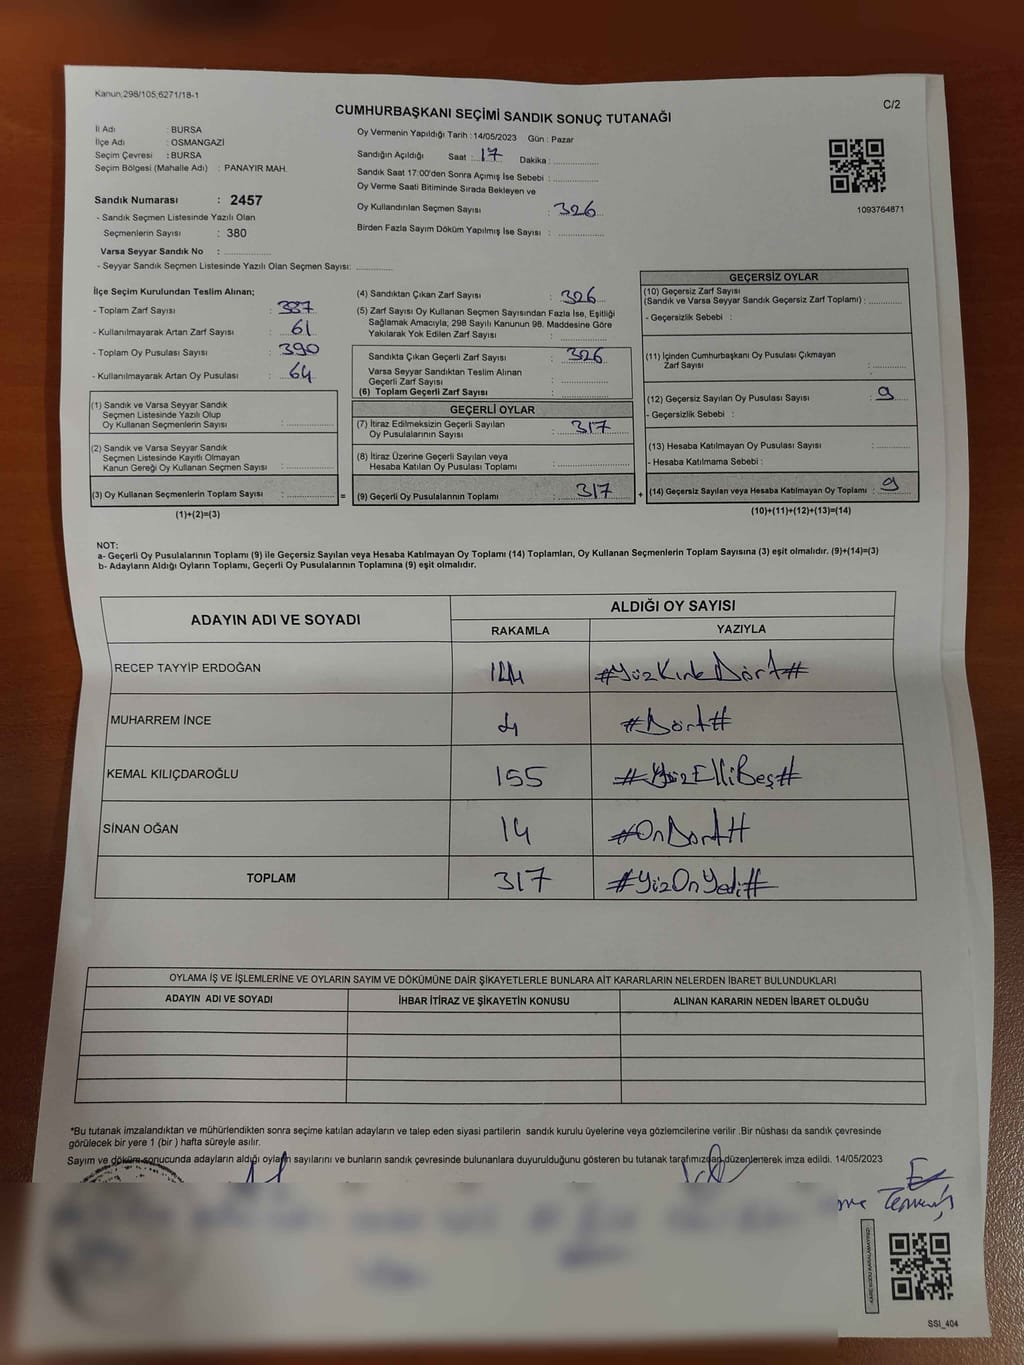 Kanun;298/105;6271/18-1
CUMHURBAŞKANI SEÇİMİ SANDIK SONUÇ TUTANAĞI
C/2
İl Adı : BURSA
İlçe Adı : OSMANGAZİ
Seçim Çevresi : BURSA
Seçim Bölgesi (Mahalle Adı) : PANAYIR MAH.
Sandık Numarası : 2457
- Sandık Seçmen Listesinde Yazılı Olan
Seçmenlerin Sayısı : 380
Varsa Seyyar Sandık No :
- Seyyar Sandık Seçmen Listesinde Yazılı Olan Seçmen Sayısı:
Oy Vermenin Yapıldığı Tarih : 14/05/2023 Gün : Pazar
Sandığın Açıldığı Saat : 17 Dakika :
Sandık Saat 17:00'den Sonra Açımış İse Sebebi :
Oy Verme Saati Bitiminde Sırada Bekleyen ve
Oy Kullandırılan Seçmen Sayısı : 326
Birden Fazla Sayım Döküm Yapılmış İse Sayısı :
1093764871
İlçe Seçim Kurulundan Teslim Alınan;
- Toplam Zarf Sayısı : 387
- Kullanılmayarak Artan Zarf Sayısı : 61
- Toplam Oy Pusulası Sayısı : 390
- Kullanılmayarak Artan Oy Pusulası : 64
(1) Sandık ve Varsa Seyyar Sandık
Seçmen Listesinde Yazılı Olup
Oy Kullanan Seçmenlerin Sayısı :
(2) Sandık ve Varsa Seyyar Sandık
Seçmen Listesinde Kayıtlı Olmayan
Kanun Gereği Oy Kullanan Seçmen Sayısı :
(3) Oy Kullanan Seçmenlerin Toplam Sayısı : =
(1)+(2)=(3)
(4) Sandıktan Çıkan Zarf Sayısı : 326
(5) Zarf Sayısı Oy Kullanan Seçmen Sayısından Fazla İse, Eşitliği
Sağlamak Amacıyla; 298 Sayılı Kanunun 98. Maddesine Göre
Yakılarak Yok Edilen Zarf Sayısı :
Sandıkta Çıkan Geçerli Zarf Sayısı : 326
Varsa Seyyar Sandıktan Teslim Alınan
Geçerli Zarf Sayısı :
(6) Toplam Geçerli Zarf Sayısı :
GEÇERLİ OYLAR
(7) İtiraz Edilmeksizin Geçerli Sayılan
Oy Pusulalarının Sayısı : 317
(8) İtiraz Üzerine Geçerli Sayılan veya
Hesaba Katılan Oy Pusulası Toplamı :
(9) Geçerli Oy Pusulalarının Toplamı : 317 +
GEÇERSİZ OYLAR
(10) Geçersiz Zarf Sayısı
(Sandık ve Varsa Seyyar Sandık Geçersiz Zarf Toplamı) :
- Geçersizlik Sebebi :
(11) İçinden Cumhurbaşkanı Oy Pusulası Çıkmayan
Zarf Sayısı :
(12) Geçersiz Sayılan Oy Pusulası Sayısı : 9
- Geçersizlik Sebebi :
(13) Hesaba Katılmayan Oy Pusulası Sayısı :
- Hesaba Katılmama Sebebi :
(14) Geçersiz Sayılan veya Hesaba Katılmayan Oy Toplamı : 9
(10)+(11)+(12)+(13)=(14)
NOT:
a- Geçerli Oy Pusulalarının Toplamı (9) ile Geçersiz Sayılan veya Hesaba Katılmayan Oy Toplamı (14) Toplamları, Oy Kullanan Seçmenlerin Toplam Sayısına (3) eşit olmalıdır. (9)+(14)=(3)
b- Adayların Aldığı Oyların Toplamı, Geçerli Oy Pusulalarının Toplamına (9) eşit olmalıdır.
ADAYIN ADI VE SOYADI ALDIĞI OY SAYISI
RAKAMLA YAZIYLA
RECEP TAYYİP ERDOĞAN 144 #YüzKırkDört#
MUHARREM İNCE 4 #Dört#
KEMAL KILIÇDAROĞLU 155 #YüzElliBeş#
SİNAN OĞAN 14 #OnDört#
TOPLAM 317 #YüzOnYedi#
OYLAMA İŞ VE İŞLEMLERİNE VE OYLARIN SAYIM VE DÖKÜMÜNE DAİR ŞİKAYETLERLE BUNLARA AİT KARARLARIN NELERDEN İBARET BULUNDUKLARI
ADAYIN ADI VE SOYADI İHBAR İTİRAZ VE ŞİKAYETİN KONUSU ALINAN KARARIN NEDEN İBARET OLDUĞU
*Bu tutanak imzalandıktan ve mühürlendikten sonra seçime katılan adayların ve talep eden siyasi partilerin sandık kurulu üyelerine veya gözlemcilerine verilir. Bir nüshası da sandık çevresinde
görülecek bir yere 1 (bir ) hafta süreyle asılır.
Sayım ve döküm sonucunda adayların aldığı oyların sayılarını ve bunların sandık çevresinde bulunanlara duyurulduğunu gösteren bu tutanak tarafımızdan düzenlenerek imza edildi. 14/05/2023
SSI_404